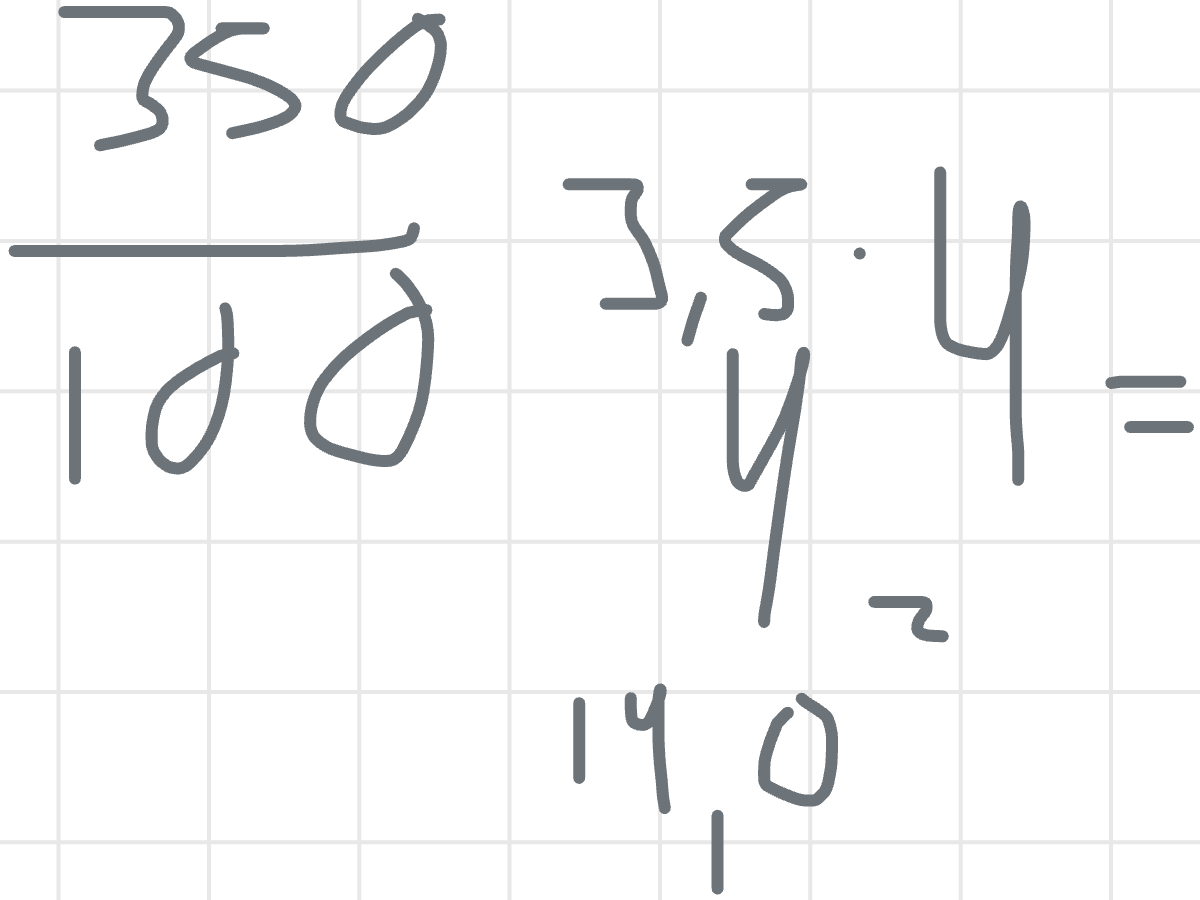 350
100
3,5 · 4 =
4
2
14,0